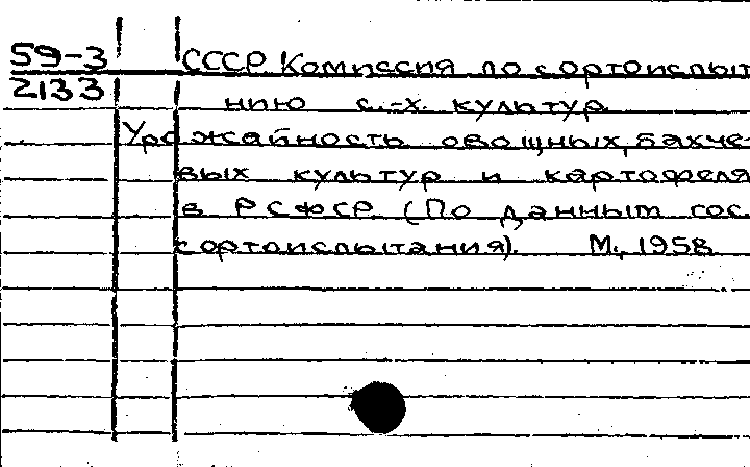 59-3
2133
СССР Комиссия по сортоиспыт
нию с.-х. культур
Урожайность овощных, бахче-
вых культур и картофеля
в РСФСР (По данным гос
сортоиспытания). М., 1958